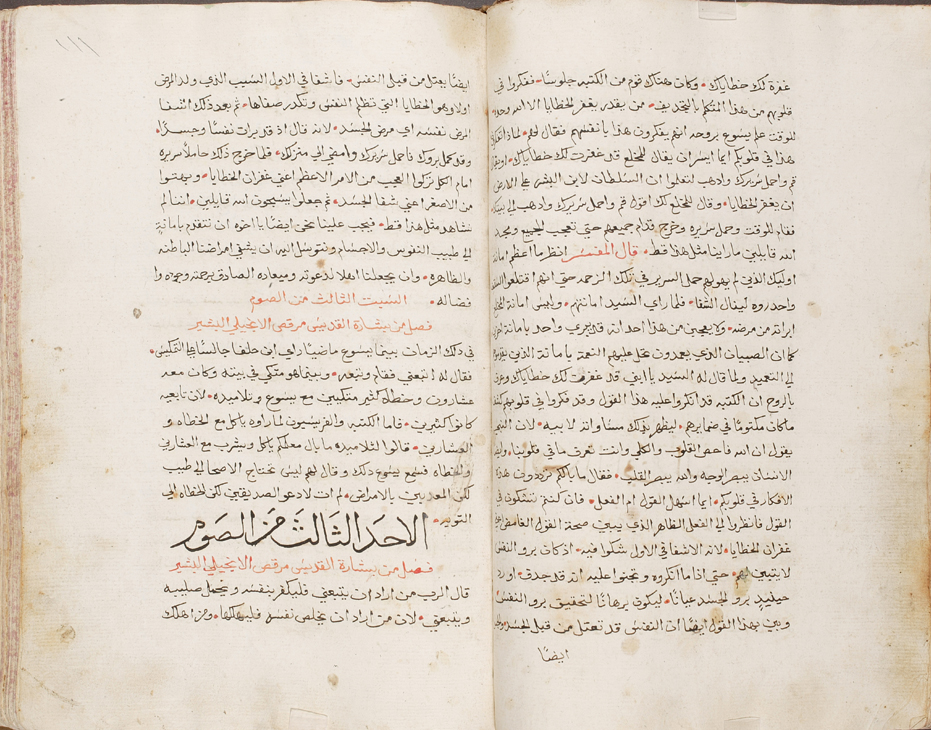 غفرة لك خطاياك • وكان هناك قوم من الكتبه جلوسًا • ففكروا في
قلوبهم من هذا المتكلم بالتجديف • من يقدر يغفر الخطايا الا الله وحده
للوقت علم يسوع بروحه انهم يفكرون هذا بانفسهم فقال لهم • لماذا تفكرون
هذا في قلوبكم ايما ايسر ان يقال للمخلع قد غفرت لك خطاياك •
قم واحمل سريرك واذهب لتعلموا ان السلطان لابن البشر على الارض
ان يغفر الخطايا • وقال للمخلع لك اقول قم واحمل سريرك واذهب الى بيتك
فقام للوقت وحمل سريره وخرج قدام جميعهم حتى تعجب الجميع ومجدوا
الله قايلين ما راينا مثل هذا قط • قال المفسر انظر ما اعظم امانة
اوليك الذين لم يهولهم حمل السرير في تلك الزحمه حتى انهم اقتلعوا
واحدروه لينال الشفا • فلما راى السيد امانتهم • وليس امانة المخلع
ابراه من مرضه • ولا يعجبن من هذا احد انه قد يبرى واحد بامانة
كما ان الصبيان الذي يعمدون تحل عليهم النعمة بامانة الذين
الى التعميد ولما قال له السيد يا ابني قد غفرت لك خطاياك وعرف
بالروح ان الكتبه قد انكروا عليه هذا القول وقد فكروا في قلوبهم
ما كان مكتومًا في ضمايرهم • ليظهر بذلك مساواته لابيه • لان النبي
يقول ان الله فاحص القلوب والكلى وانت تعرف ما في قلوبنا •
الانسان يبصر الوجه والله يبصر القلب • فقال ما بالكم ترددون هذا
الافكار في قلوبكم • ايما اسهل القول ام الفعل • فان كنتم تشكون في
القول فانظروا الى الفعل الظاهر الذي يبين صحة القول الغامض
غفران الخطايا • لانه الاشفا في الاول شكوا فيه • اذ كان برو النفس
لا يتبين لهم • حتى اذا ما انكروه وتجنوا عليه انه قد جدف • اورد
حينيذٍ برو الجسد عيانًا • ليكون برهانًا لتحقيق برو النفس
وبين بهذا القول ايضًا ان النفس قد تعتل من قبل الجسد
ايضًا
١١١
ايضًا يعتل من قبل النفس • فاشفا في الاول السبب الذي ولد المرض
اولا وهو الخطايا التي تظلم النفس وتكدر صفاها • ثم بعد ذلك اشفا
المرض نفسه اي مرض الجسد • لانه قال اذ قد برات نفسًا وجسدًا •
وقد كمل بروك فاحمل سريرك وامضي الى منزلك • فلما خرج ذلك حاملًا سريره
امام الكل تركوا العجب من الامر الاعظم اعني غفران الخطايا • وبهتوا
من الاصغر اعني شفا الجسد • ثم جعلوا يسبحون الله قايلين • اننا لم
نشاهد مثل هذا قط • فيجب علينا نحن ايضًا يا اخوه ان نتقدم بامانةٍ
الى طبيب النفوس والاجسام ونتوسل اليه ان يشفي امراضنا الباطنه
والظاهره • وان يجعلنا اهلا لدعوته وميعاده الصادق برحمته وجوده و
فضاله • السبت الثالث من الصوم
فصل من بشارة القديس مرقص الانجيلي البشير
في ذلك الزمان بينما يسوع ماضيًا راى ابن حلفا جالسًا على التمكيس •
فقال له اتبعني فقام وتبعه • وبينما هو متكي في بيته وكان معه
عشارون وخطاه كثير متكيين مع يسوع وتلاميذه • لان تابعيه
كانوا كثيرين • فاما الكتبه والفريسيون لما راوه ياكل مع الخطاه و
العشارين • قالوا لتلاميذه ما بال معلمكم ياكل ويشرب مع العشارين
والخطاه فسمع يسوع ذلك وقال لهم ليس تحتاج الاصحا الى طبيب
لكن المعذبين بالامراض • لم ات لادعو الصديقين لكن الخطاه الى
التوبه •
الاحد الثالث من الصوم
فصل من بشارة القديس مرقص الانجيلي البشير
قال الرب من اراد ان يتبعني فليكفر بنفسه ويحمل صليبه
ويتبعني • لان من اراد ان يخلص نفسه فليهلكها • ومن اهلك